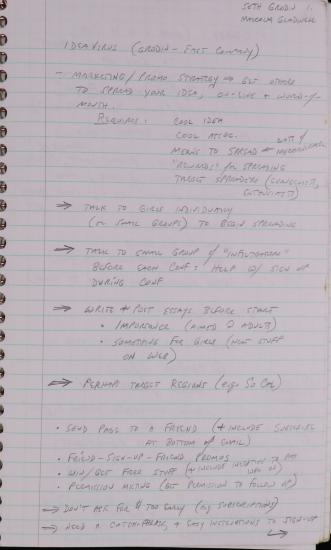 SETH GRODIN 1.
MALCOLM GLADWELL
IDEA VIRUS (GRODIN - FAST COMPANY)
- MARKETING/PROMO STRATEGY ⇒ GET OTHERS
TO SPREAD YOUR IDEA, ON-LINE + WORD-OF-
MOUTH.
REQUIRES: COOL IDEA
COOL
MEANS TO SPREAD ←
"REWARDS" FOR SPREADING
TARGET SPREADERS (
→ TALK TO GIRLS INDIVIDUALLY
(OR SMALL GROUPS) TO BEGIN SPREADING
→ TALK TO SMALL GROUP OF
BEFORE EACH CONF: HELP W/ SIGN UP
DURING CONF
→ WRITE + POST ESSAYS BEFORE START
• IMPORTANCE (AIMED @ ADULTS)
• SOMETHING FOR GIRLS (NEAT STUFF
ON WEB)
→ PERHAPS TARGET REGIONS (e.g. SO CAL)
• SEND PAGE TO A FRIEND (+ INCLUDE
AT BOTTOM OF EMAIL)
• FRIEND-SIGN-UP-FRIEND, PROMOS
• WIN/GET FREE STUFF (+ INCLUDE INCENTIVE TO
• PERMISSION MKTING (GET PERMISSION TO FOLLOW UP)
→ DON'T ASK FOR $ TOO EARLY (e.g. SUBSCRIPTIONS)
→ NEED A CATCHPHRASE, + EASY INSTRUCTIONS TO SIGN-UP